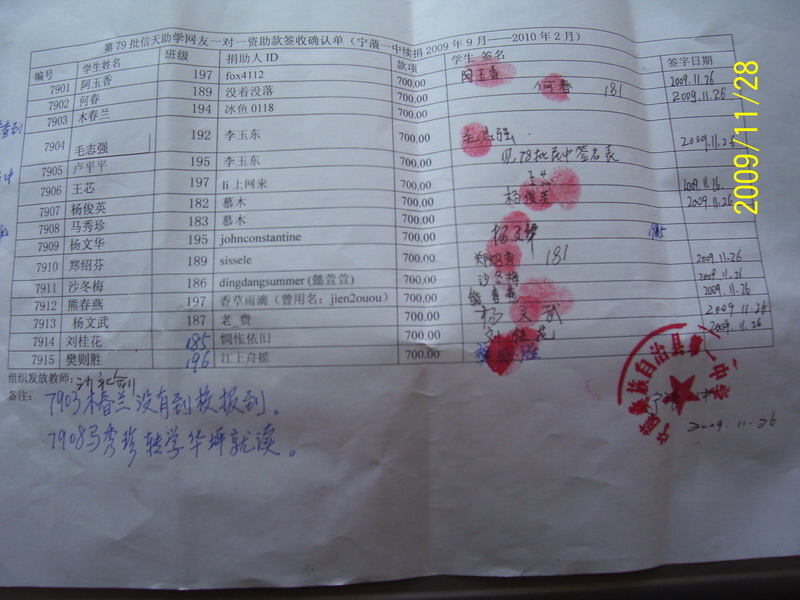 第79批信天助学网友一对一资助款签收确认单（宁蒗一中续捐2009年9月——2010年2月）
编号 学生姓名 班级 捐助人ID 款项 学生 签名 签字日期
7901 阿玉香 197 fox4112 700.00 阿玉香 2009.11.26
7902 何春 189 没着没落 700.00 何春 181 2009.11.26
7903 木春兰 194 冰鱼0118 700.00
7904 毛志强 192 李玉东 700.00 毛志强 2009.11.26
7905 卢平平 195 李玉东 700.00 见78批 签名表
7906 王芯 197 li上网来 700.00 王芯 2009.11.26
7907 杨俊英 182 慕木 700.00 杨俊英 2009.11.26
7908 马秀珍 183 慕木 700.00
7909 杨文华 195 johnconstantine 700.00 杨文华 185
7910 郑绍芬 189 sissele 700.00 郑绍芬 181 2009.11.26
7911 沙冬梅 186 dingdangsummer (懿萱萱) 700.00 沙冬梅 2009.11.26
7912 熊春燕 197 香草雨滴（曾用名：jien2ouou） 700.00 熊春燕 2009.11.26
7913 杨文武 187 老_费 700.00 杨文武 2009.11.26
7914 刘桂花 185 惆怅依旧 700.00 刘桂花 2009.11.26
7915 樊则胜 196 江上舟摇 700.00 樊则胜
组织发放教师：
备注：
7903木春兰没有到校报到。
7908马秀珍转学华坪就读。
2009.11.26
2009/11/28